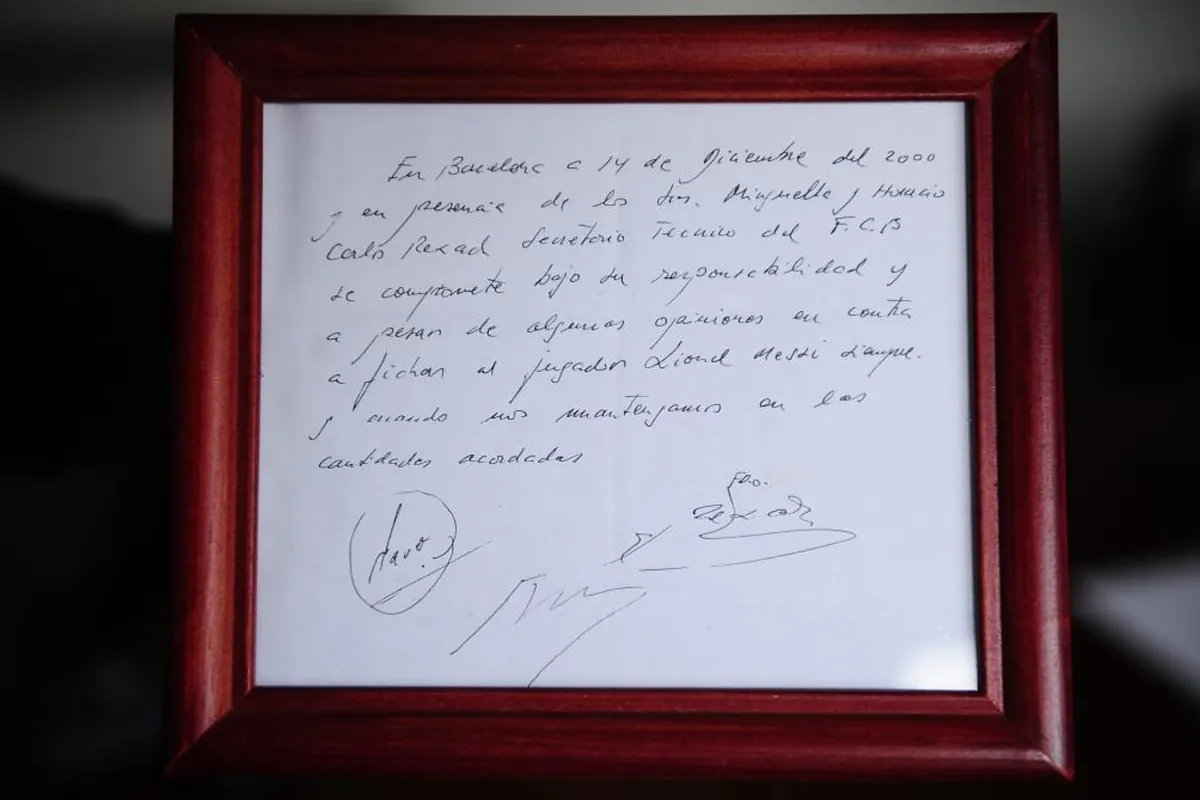 En Barcelona a 14 de Diciembre del 2000
y en presencia de los Srs. Minguella y Horacio
Carles Rexach Secretario Tecnico del F.C.B
se compromete bajo su responsabilidad y
a pesar de algunas opiniones en contra
a fichar al jugador Lionel Messi siempre
y cuando nos mantengamos en las
cantidades acordadas
FDO.